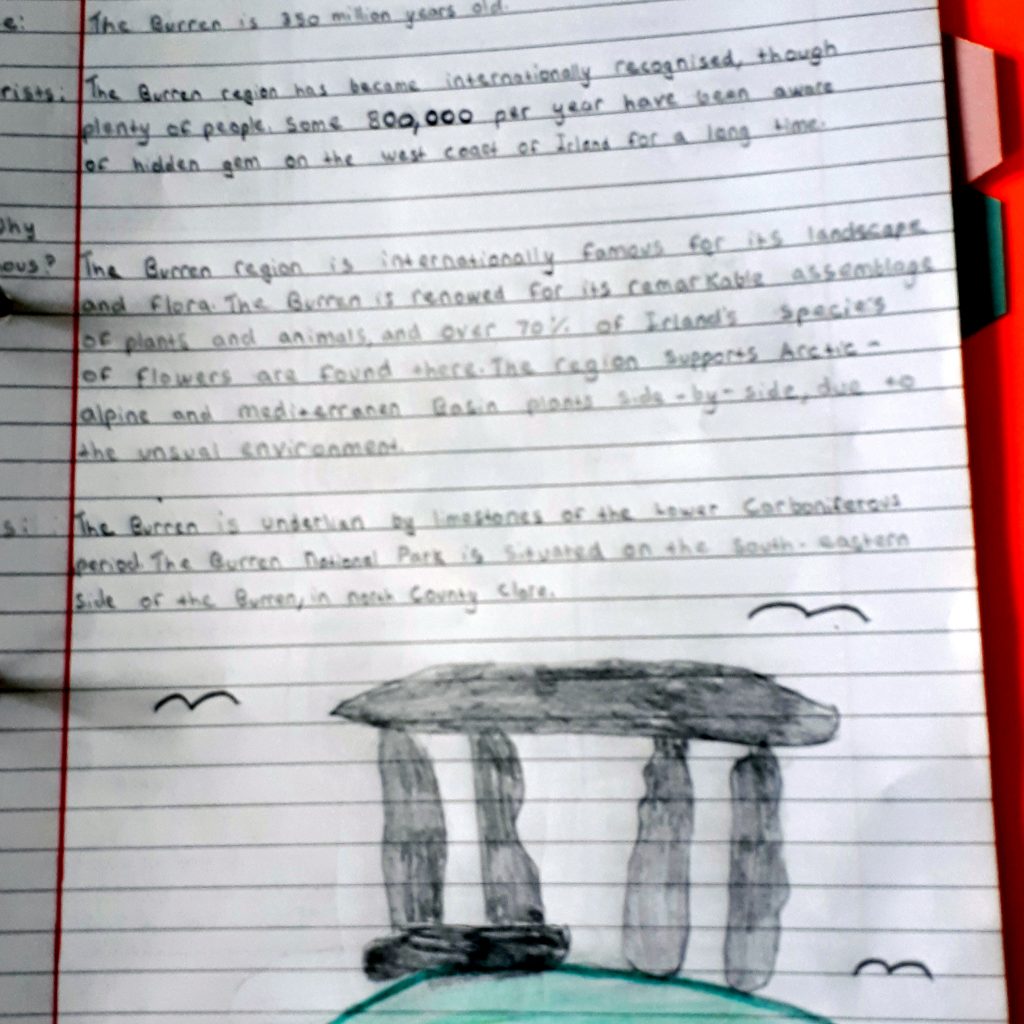 e: The Burren is 350 million years old.
rists: The Burren region has became internationally recognised, though
plenty of people. Some 800,000 per year have been aware
of hidden gem on the west coast of Irland for a long time.
hy
ous? The Burren region is internationally famous for its landscape
and flora. The Burren is renowed for its remarkable assemblage
of plants and animals, and over 70% of Irland's specie's
of flowers are found there. The region supports Arctic-
alpine and mediterranen Basin plants side-by-side, due to
the unsual environment.
s: The Burren is underlian by limestones of the Lower Carboniferous
period. The Burren National Park is situated on the South-eastern
side of the Burren, in north County Clare.